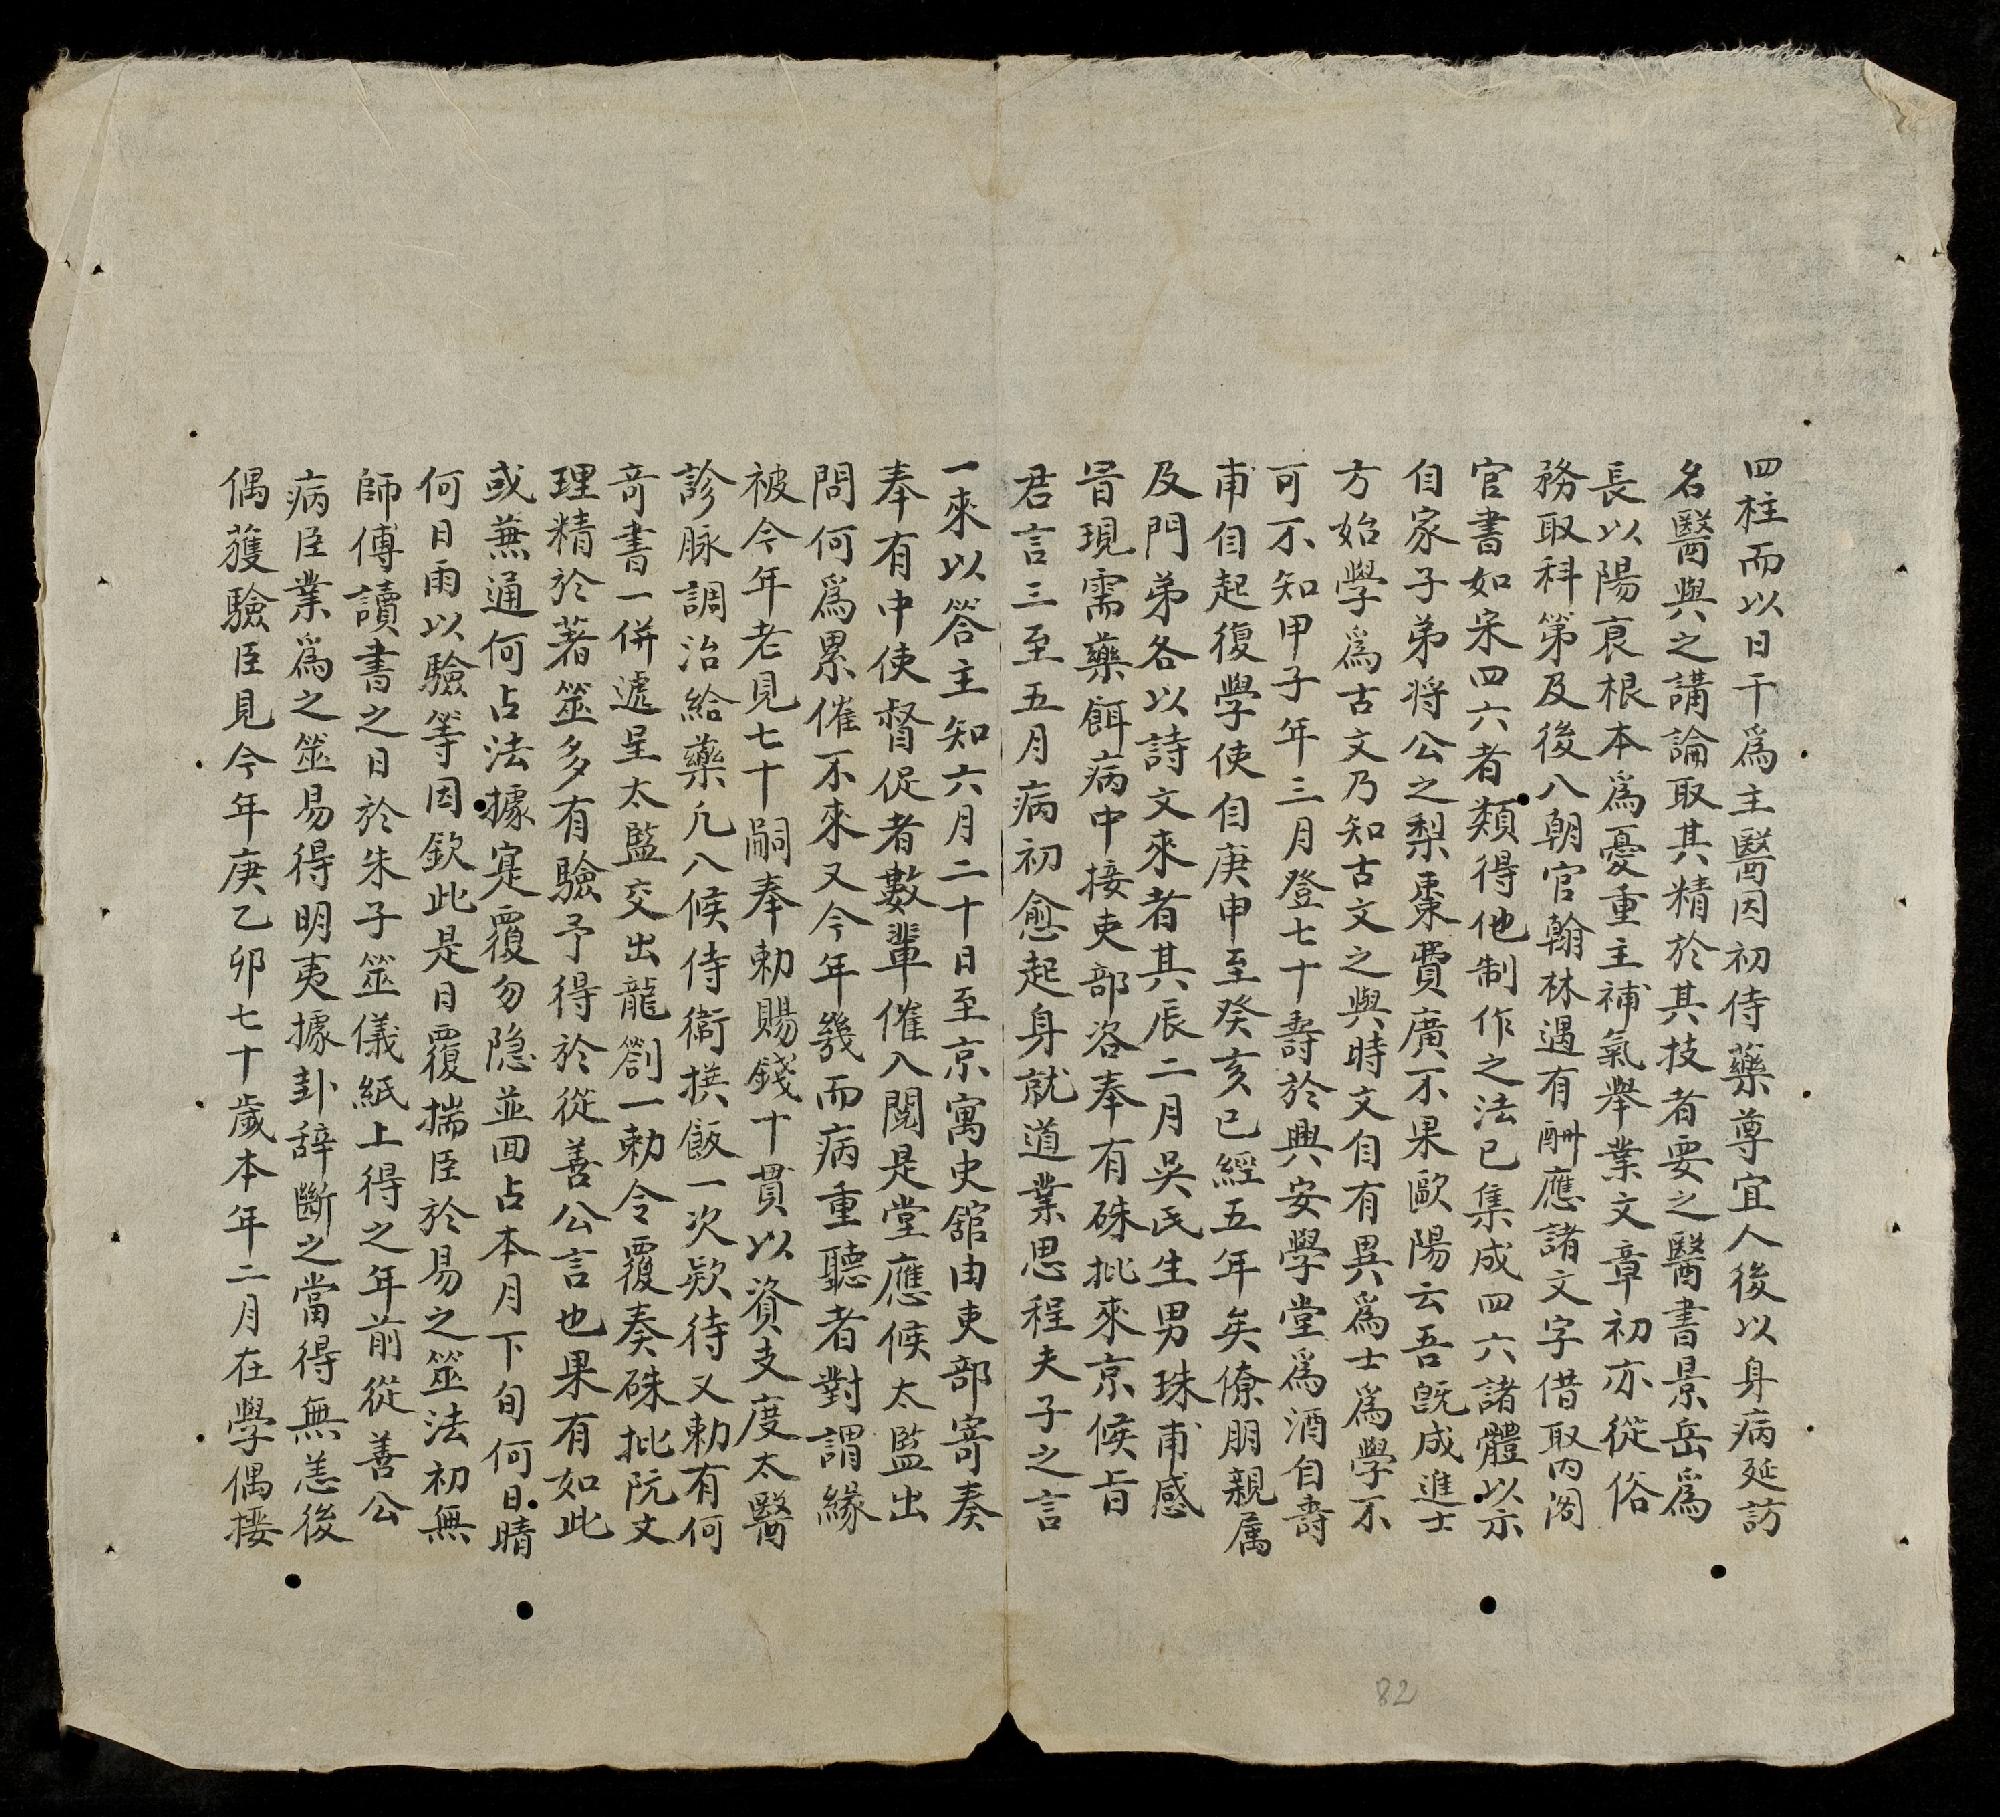 四柱而以日干爲主醫因初侍藥尊宜人後以身病延訪
名醫與之講論取其精於其技者要之醫書景岳爲
長以陽衰根本爲憂重主補氣舉業文章初亦從俗
務取科第及後入朝官翰林遇有酬應諸文字借取内閣
官書如宋四六者類得他制作之法已集成四六諸體以示
自家子弟将公之梨棗費廣不果歐陽云吾既成進士
方始學爲古文乃知古文之與時文自有異爲士爲學不
可不知甲子年三月登七十壽於興安學堂爲酒自壽
甫自起復學使自庚申至癸亥已經五年矣僚朋親属
及門弟各以詩文來者其辰二月吳氏生男珠甫感
冒現需藥餌病中接吏部咨奉有硃批來京候旨
君言三至五月病初愈起身就道業思程夫子之言
一來以答主知六月二十日至京寓史舘由吏部寄奏
奉有中使督促者數輩催入閣是堂應候太監出
問何爲累催不來又今年幾而病重聽者對謂緣
被今年老見七十嗣奉勅賜錢十貫以資支度太醫
診脉調治給藥凡八候侍衛撰飯一次欵待又勅有何
竒書一併遞呈太監交出龍劄一勅令覆奏硃批阮文
理精於蓍筮多有驗予得於從善公言也果有如此
或兼通何占法據寔覆勿隐並囬占本月下旬何日晴
何日雨以驗等因欽此是日覆揣臣於易之筮法初無
師傅讀書之日於朱子筮儀紙上得之年前從善公
病臣業爲之筮易得明夷據卦辞斷之當得無恙後
偶獲驗臣見今年庚乙卯七十歲本年二月在學偶接